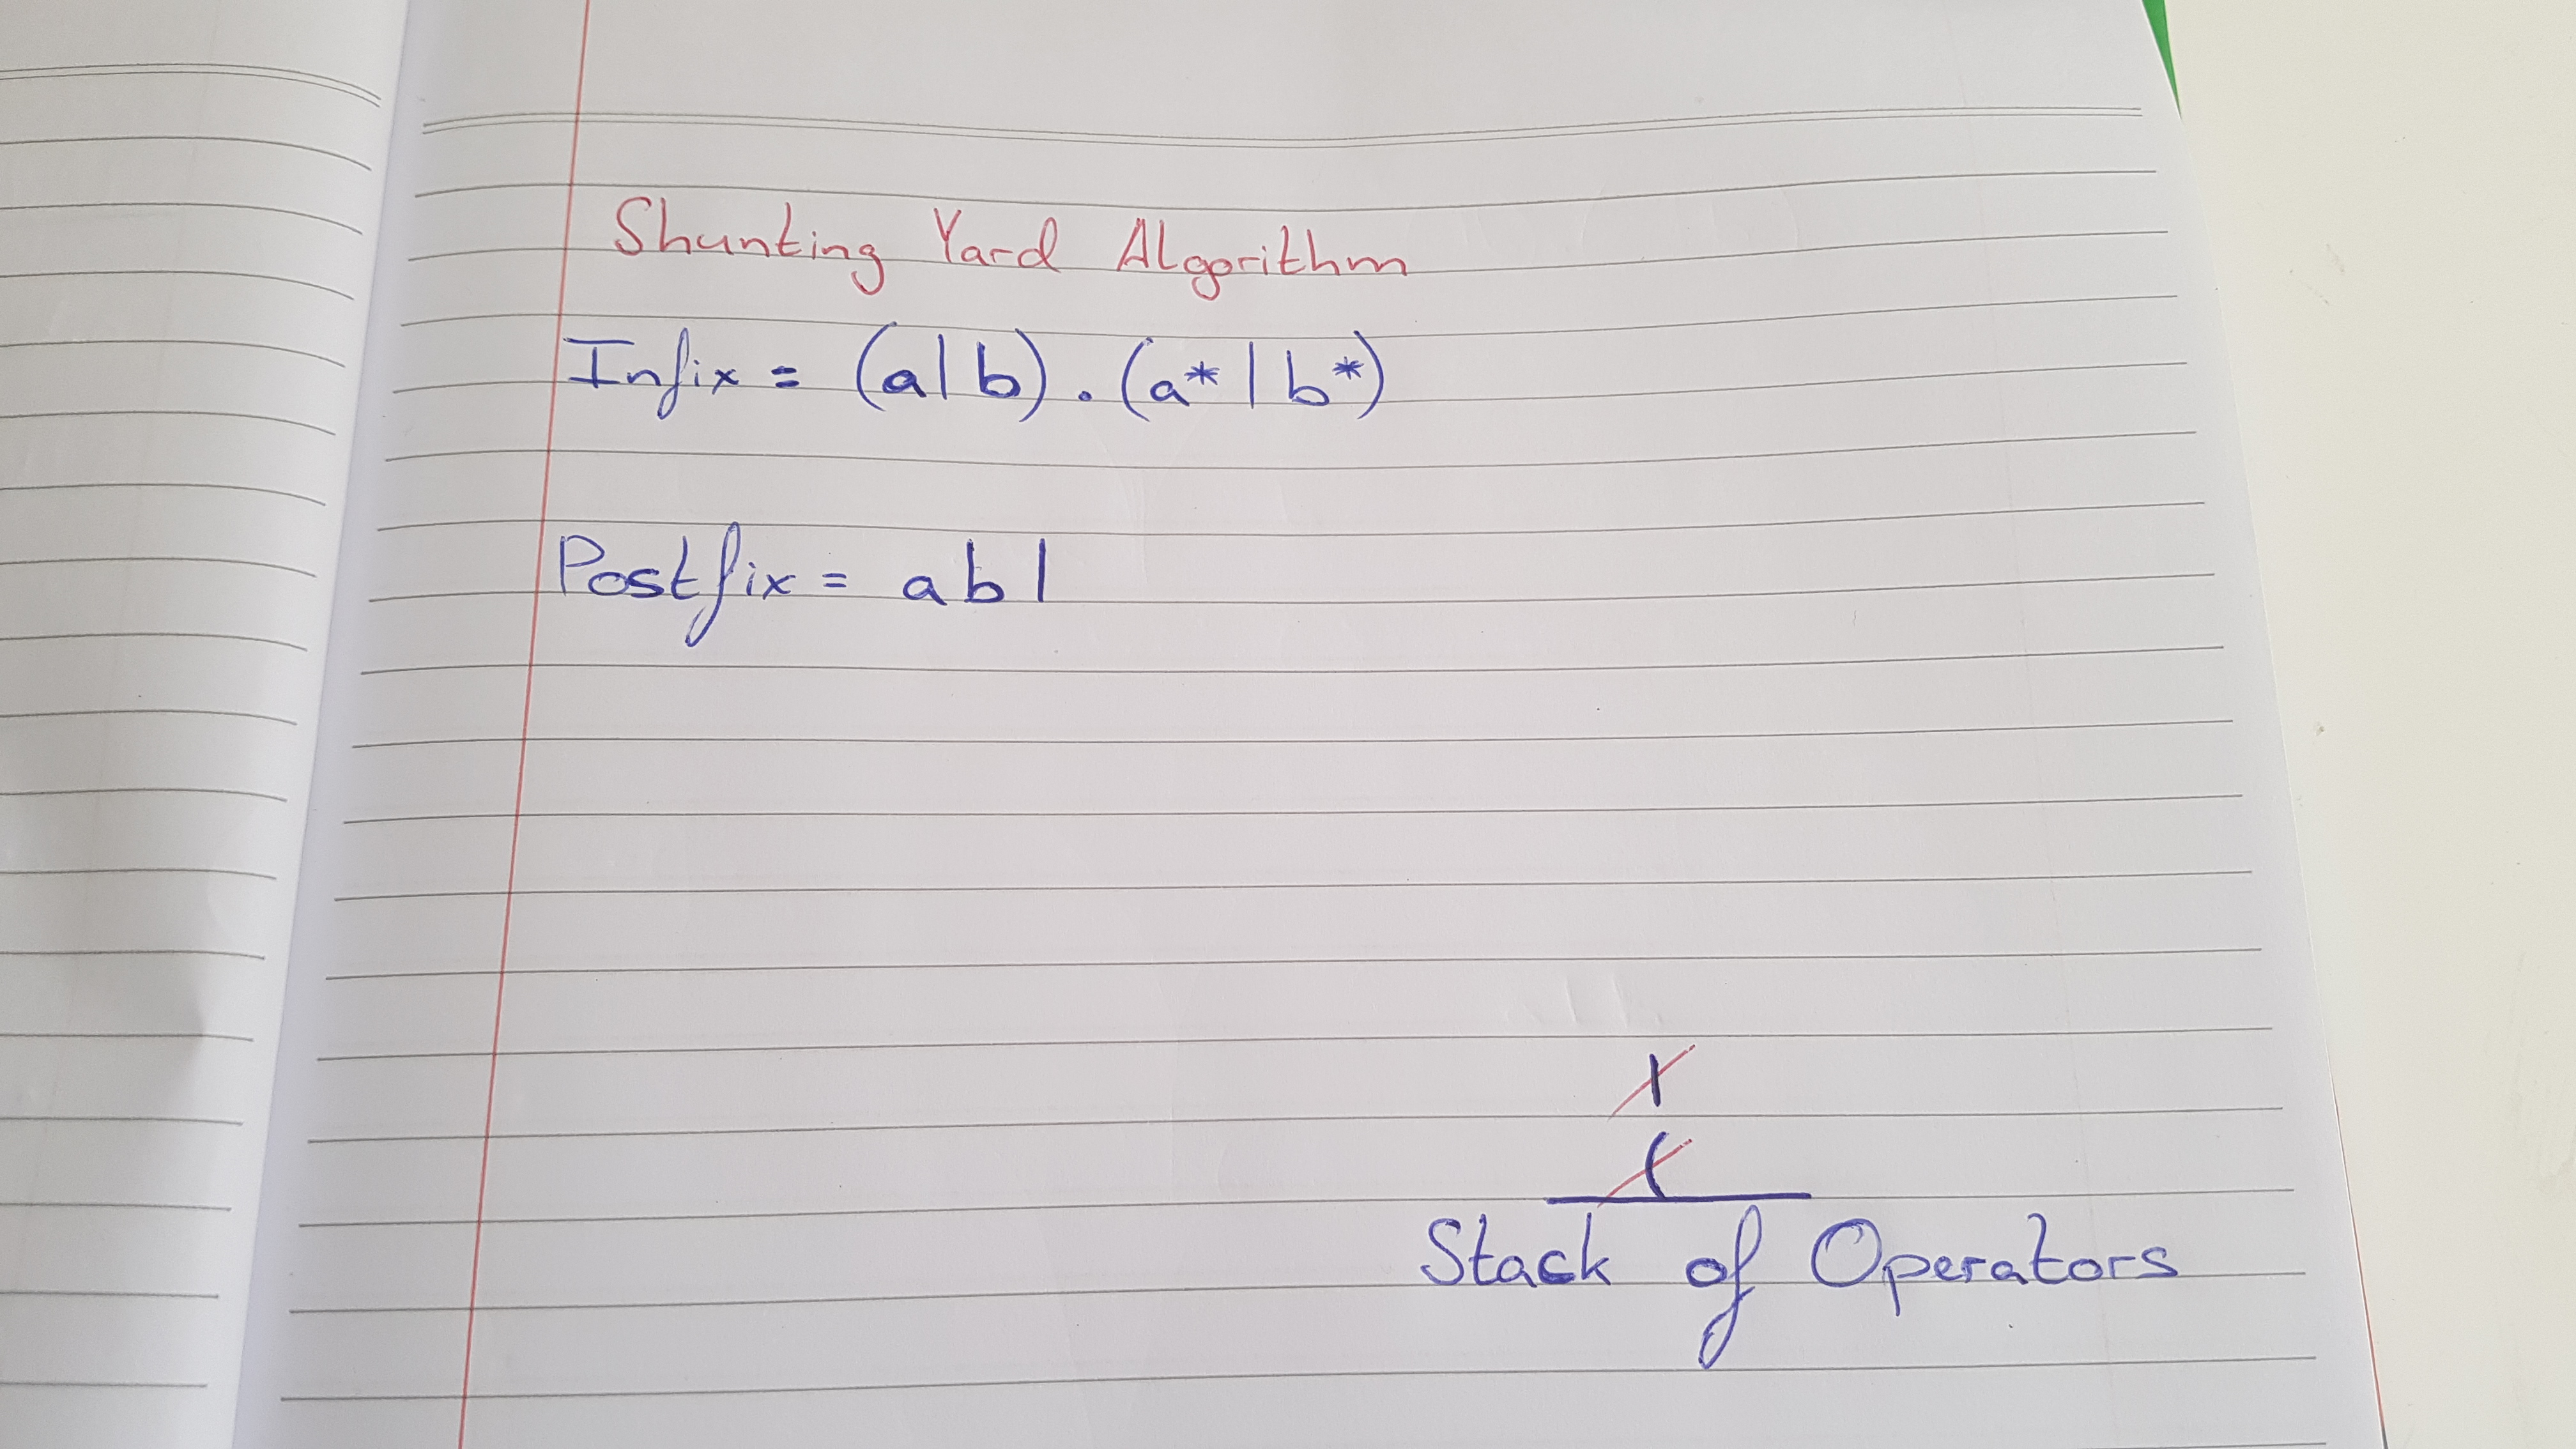 Shunting Yard Algorithm
Infix = (a|b).(a*|b*)
Postfix = ab|
|
(
Stack of Operators